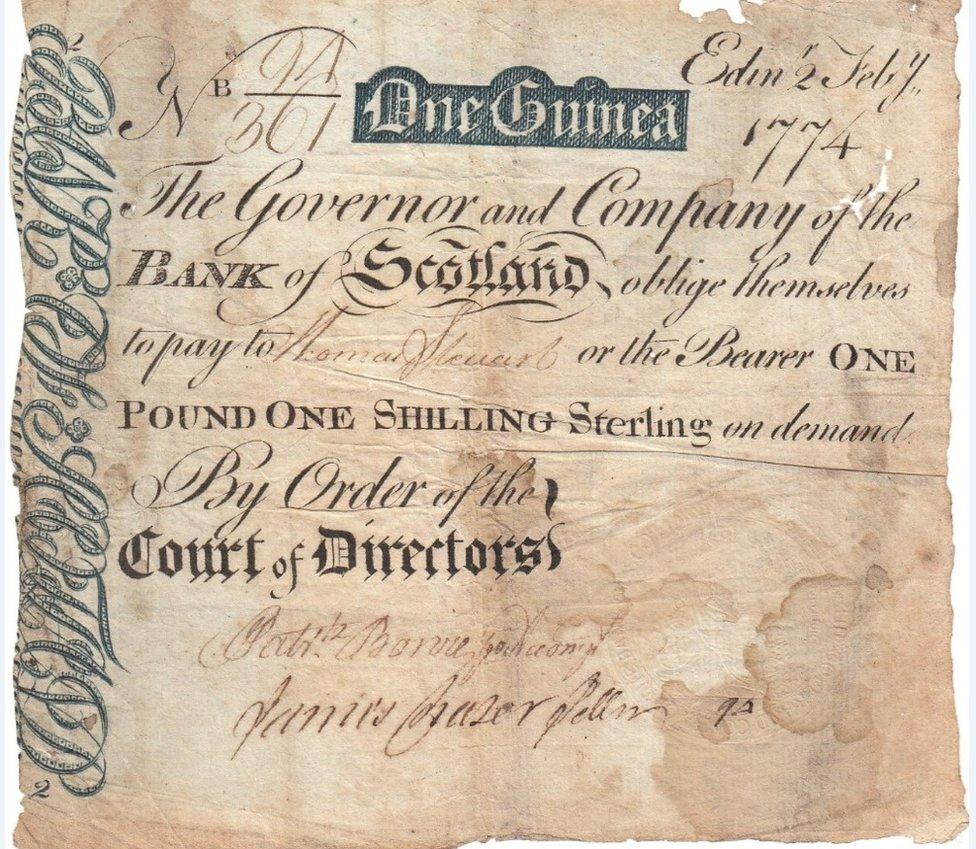 No B 94/361 One Guinea Edinr. 2 Feby.
1774
The Governor and Company of the
BANK of Scotland, oblige themselves
to pay to Thomas Steuart or the Bearer ONE
POUND ONE SHILLING Sterling on demand.
By Order of the
Court of Directors
James Frazer Teller
2
2